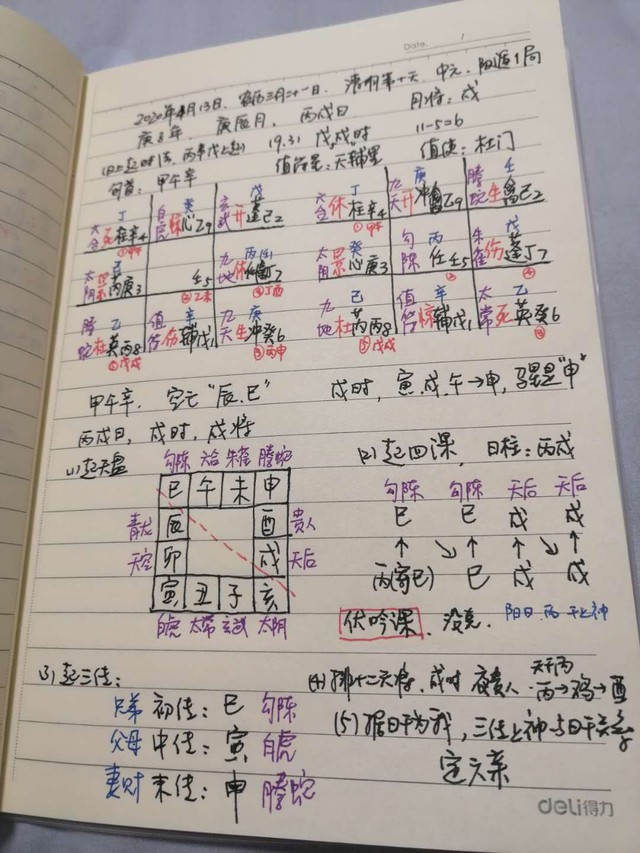 Date. /
2020年4月13日、农历三月二十一日、清明第十天、中元、阳遁1局
庚子年、庚辰月、丙戌日 月将：戌
(日上起时法、丙辛戊上起) 19.31 戊戌时 11-5=6
旬首：甲午辛 值符星：天辅星 值使：杜门
丁 癸 戊 丁 庚 壬
太 死柱辛4 白虎 惊心乙9 玄武 开蓬己2 六合 休柱辛4 九天 开冲乙9 螣蛇 生己2
①甲午 ①甲午
己 丙 癸 丙 戊
太阴 景芮庚3 壬5 九地 休任丁7 太阴 景心庚3 勾陈 任壬5 朱雀 伤蓬丁7
②乙未 ④丁酉
螣蛇 乙 值符 辛 九天 庚 九地 己 值符 辛 太常 乙
杜英丙8 伤辅戊1 生冲癸6 杜芮丙8 惊辅戊1 死英癸6
⑤戊戌 ③丙申 ⑤戊戌
甲午辛、空亡“辰、巳” 戌时、寅、戌、午→申，马星是“申”
丙戌日、戌时、戌将
(1)起天盘 勾陈 六合 朱雀 螣蛇 (2)起四课，日柱：丙戌
巳 午 未 申 勾陈 勾陈 天后 天后
青龙 辰 酉 贵人 巳 巳 戌 戌
天空 卯 戌 天后 ↑ ↘ ↑ ↘ ↑ ↘ ↑
寅 丑 子 亥 丙(寄巳) 巳 戌 戌
白虎 太常 玄武 太阴 伏吟课、没克、阳日、丙干上神
(3)起三传： (4)排十二天将，戌时 夜贵人、天干丙
丙→鸡→酉
兄弟 初传：巳 勾陈 (5)据日干为我，三传上神与日干关系
父母 中传：寅 白虎 定六亲
妻财 末传：申 螣蛇
deli得力